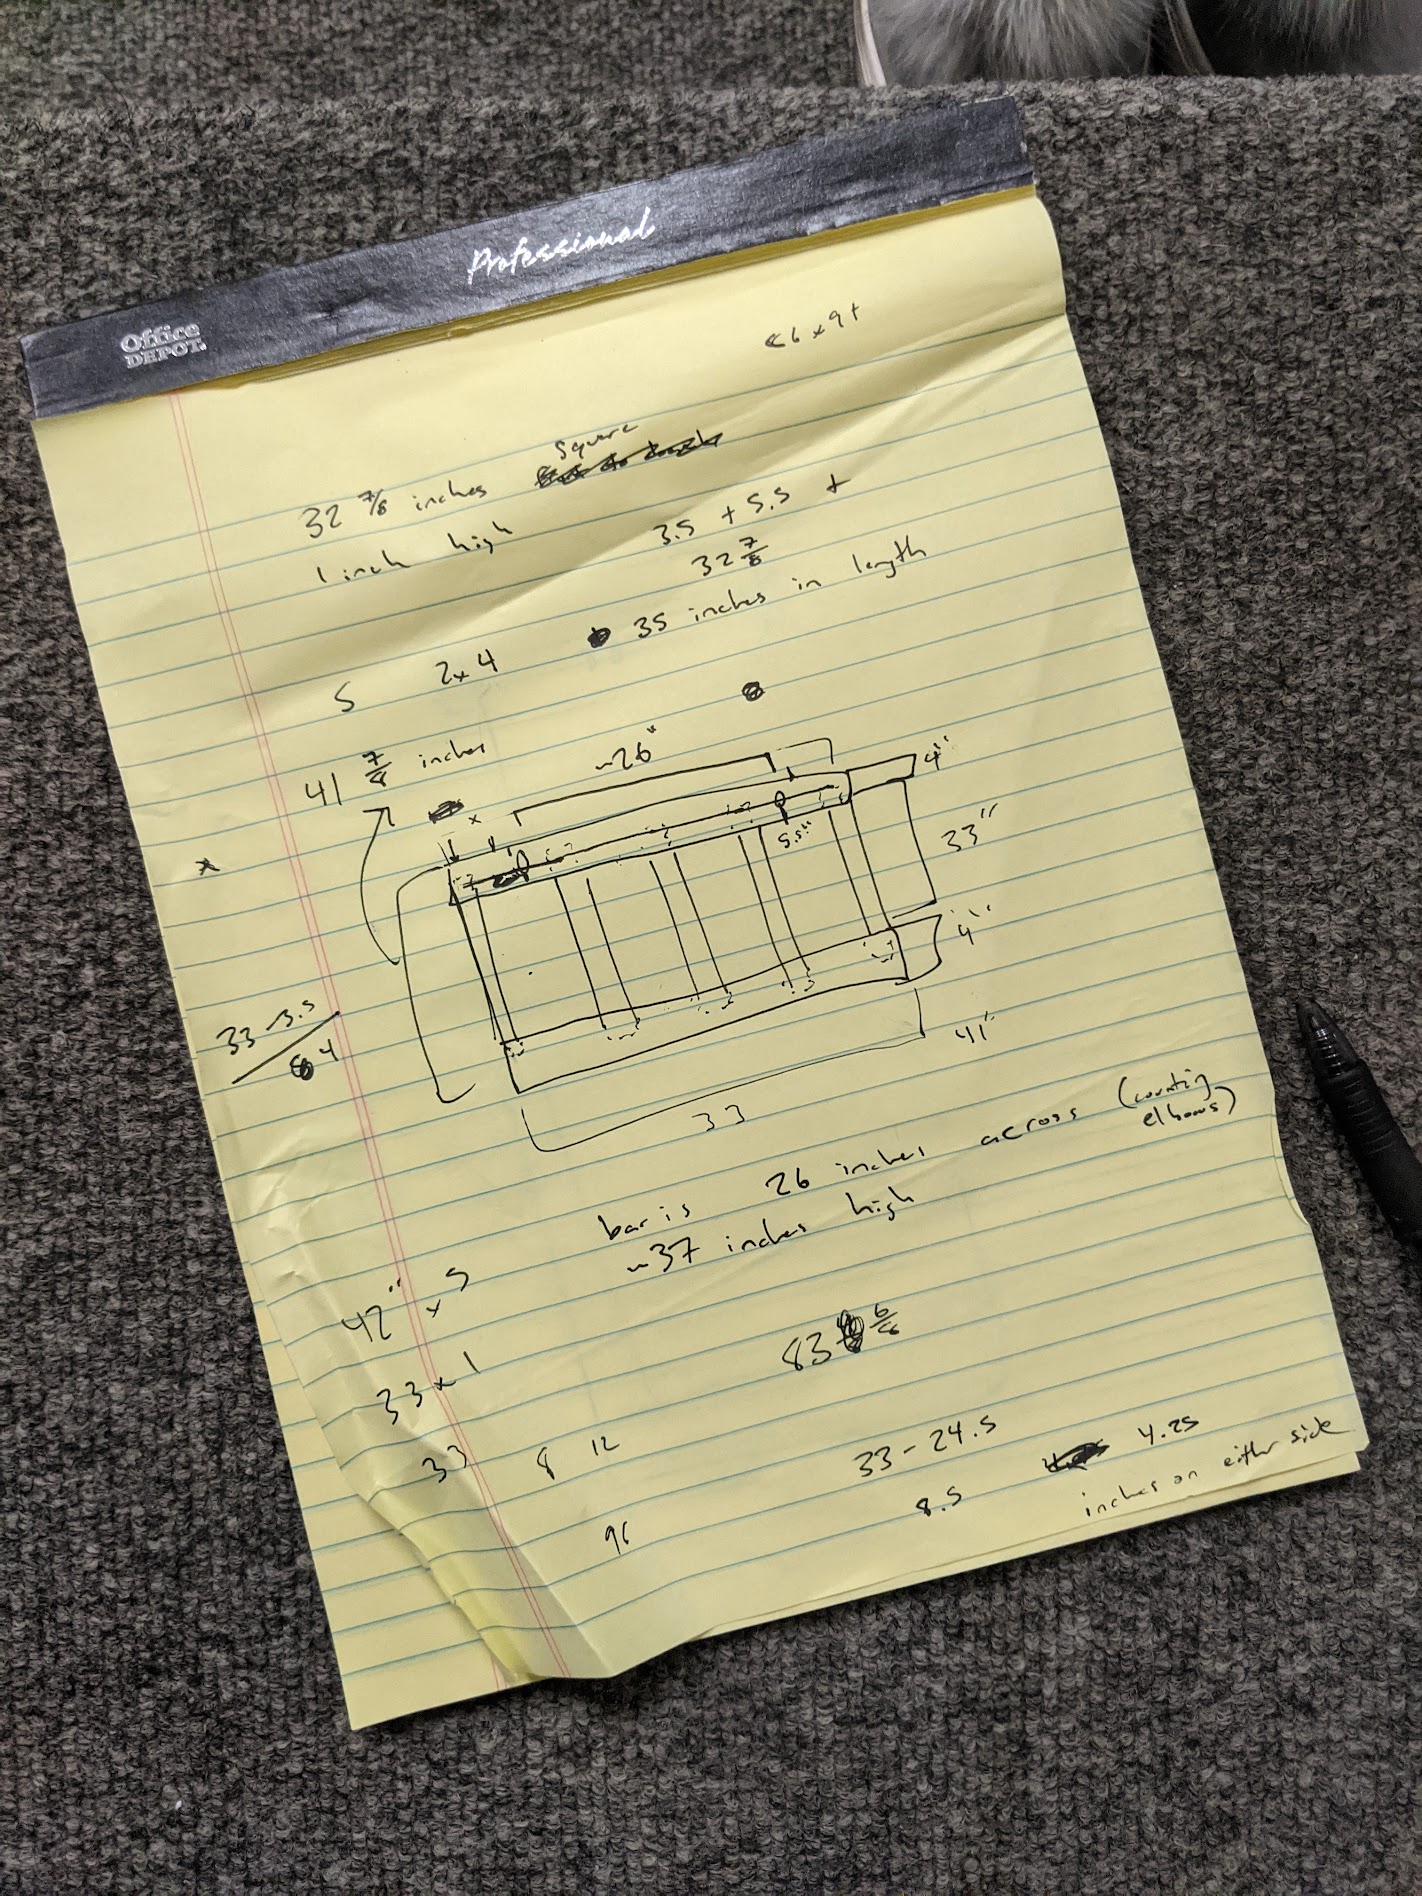 Professional
Office
DEPOT.
6 x 9+
Square
32 7/8 inches
1 inch high
3.5 + 5.5 +
32 7/8
35 inches in length
5 2x4
41 7/8 inches
~26"
4"
x
5.5"
33"
x
4"
33 - 3.5
4
41"
33
bar is 26 inches across (counting
elbows)
~37 inches high
42" x 5
83 6/8
33 x 1
33 8 12
33 - 24.5
4.25
8.5
inches on either side
96